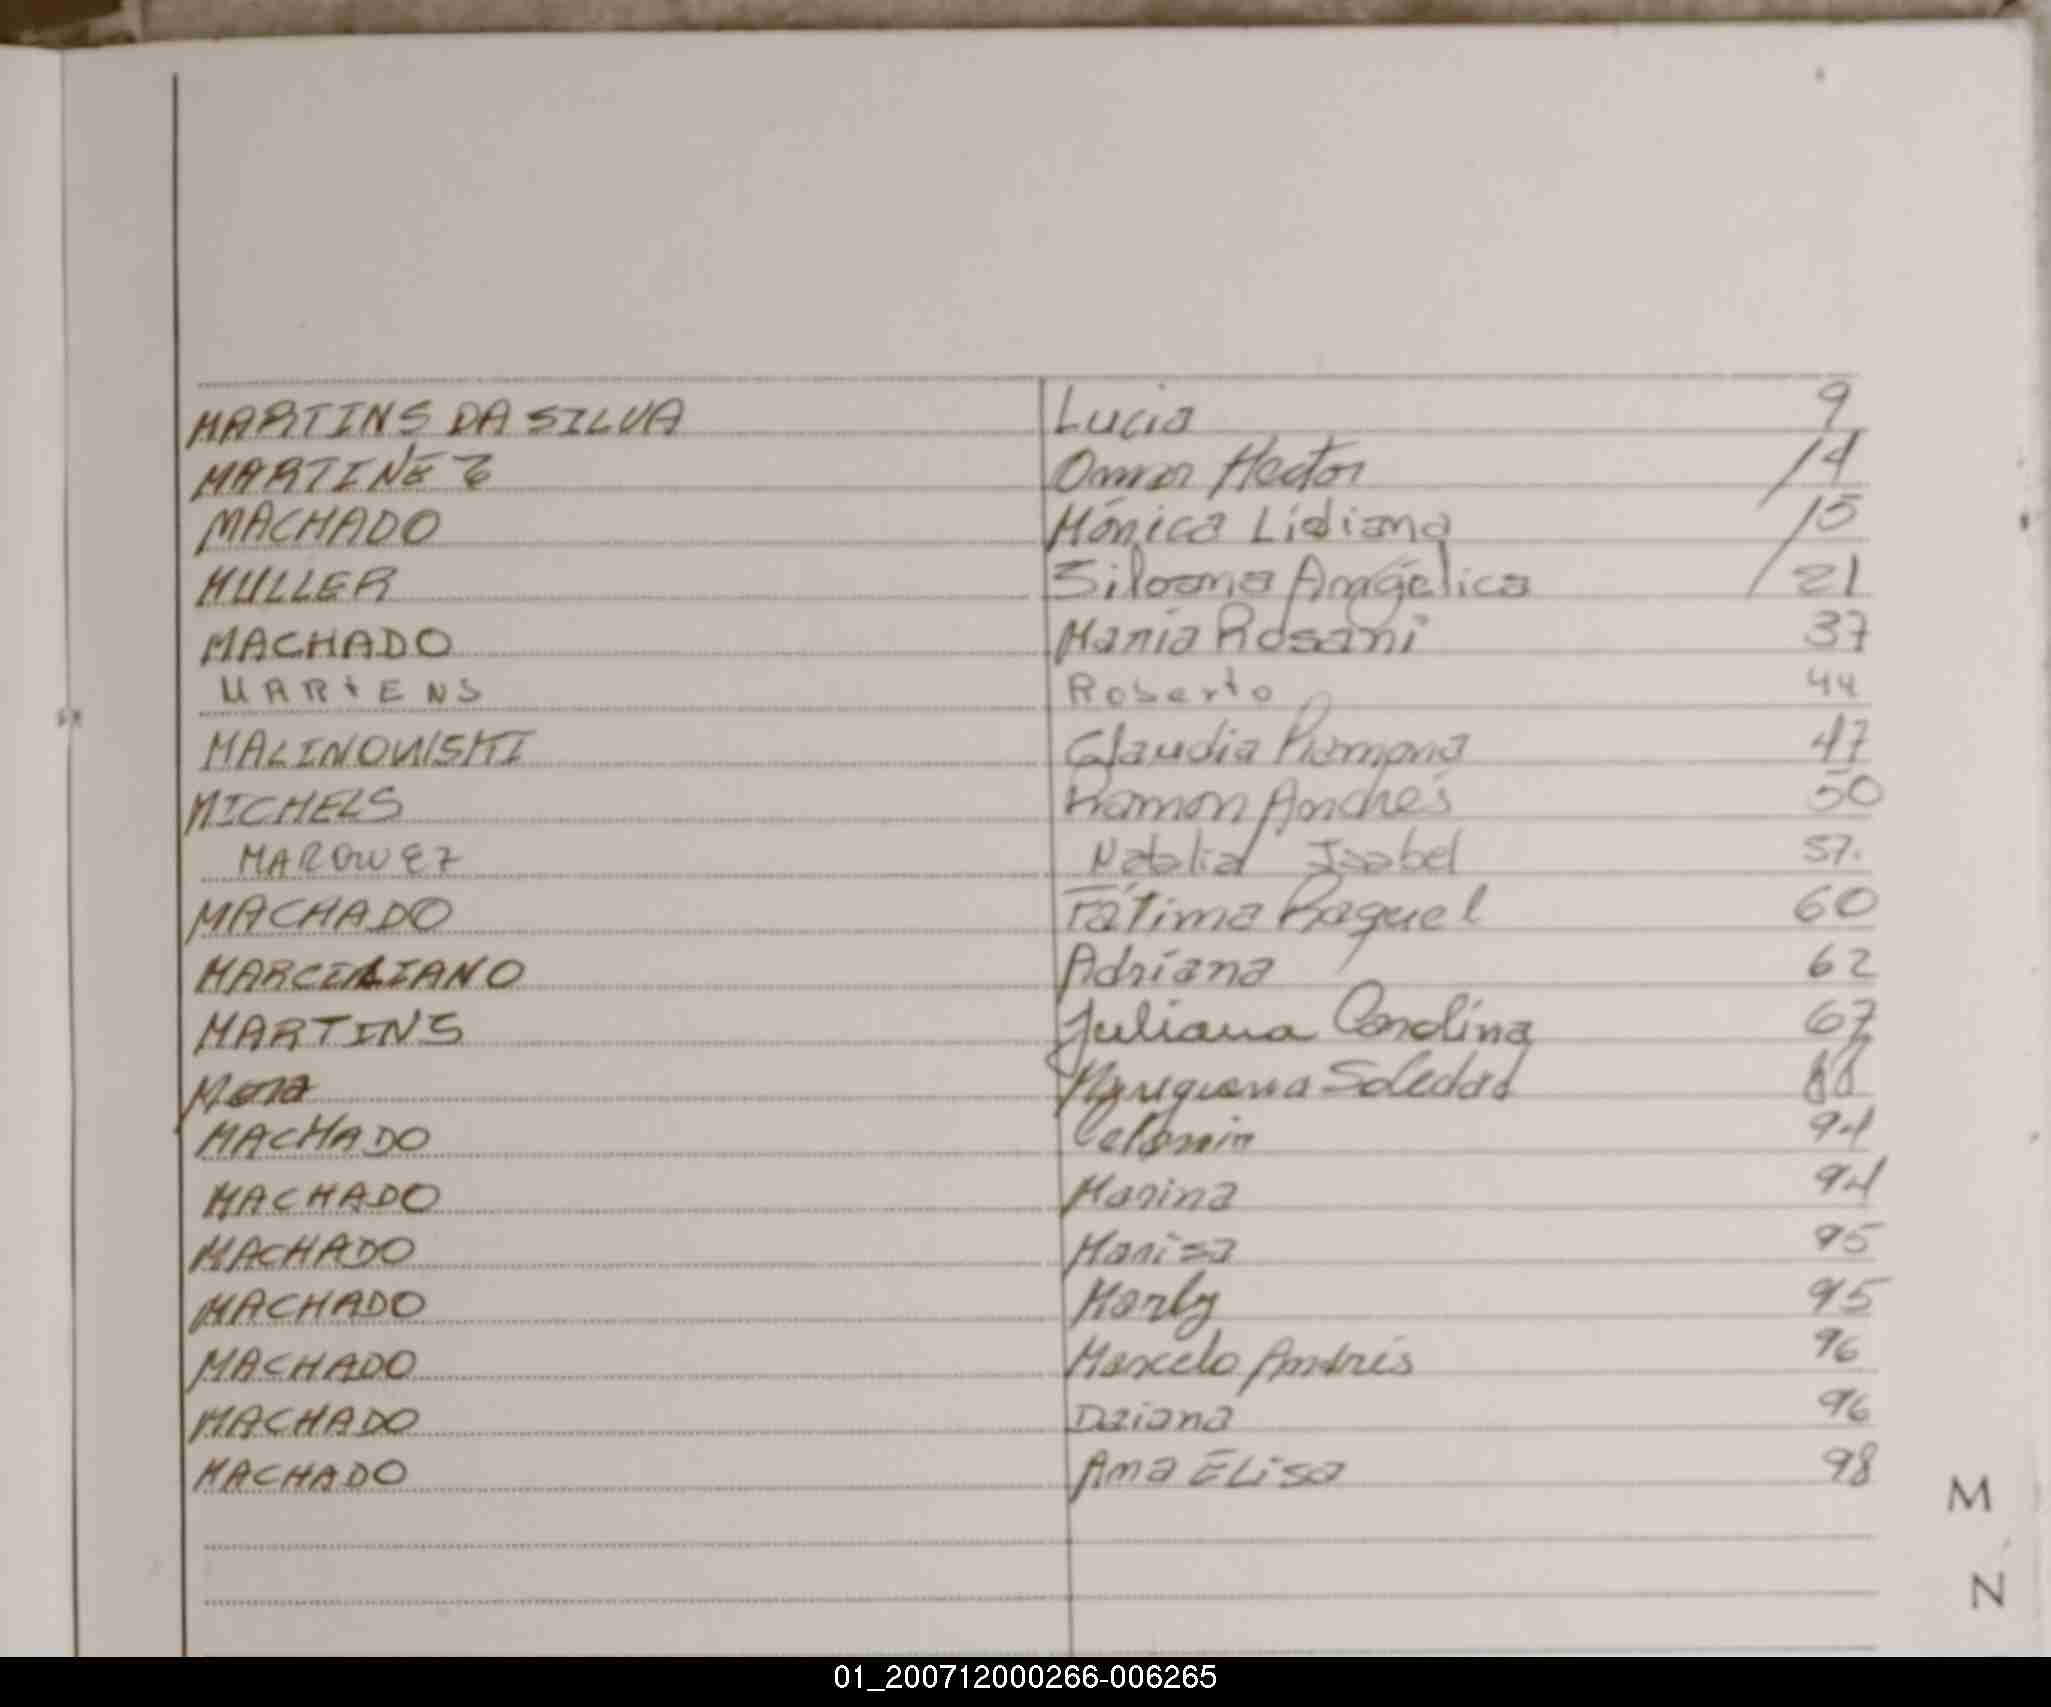 MARTINS DA SILVA Lucia 9
MARTINEZ Omar Hector 14
MACHADO Mónica Lidiana 15
MULLER Silvana Angélica 21
MACHADO Maria Rosani 37
MARTENS Roberto 44
MALINOWISKI Claudia Ramona 47
MICHELS Ramon Andrés 50
MARQUEZ Natalia Isabel 57.
MACHADO Fátima Raquel 60
MARCILIANO Adriana 62
MARTINS Juliana Carolina 67
Mora Soledad 88
MACHADO 94
MACHADO Marina 94
MACHADO Marisa 95
MACHADO Marly 95
MACHADO Marcelo Andrés 96
MACHADO Daiana 96
MACHADO Ana ELisa 98
M
N
01_200712000266-006265